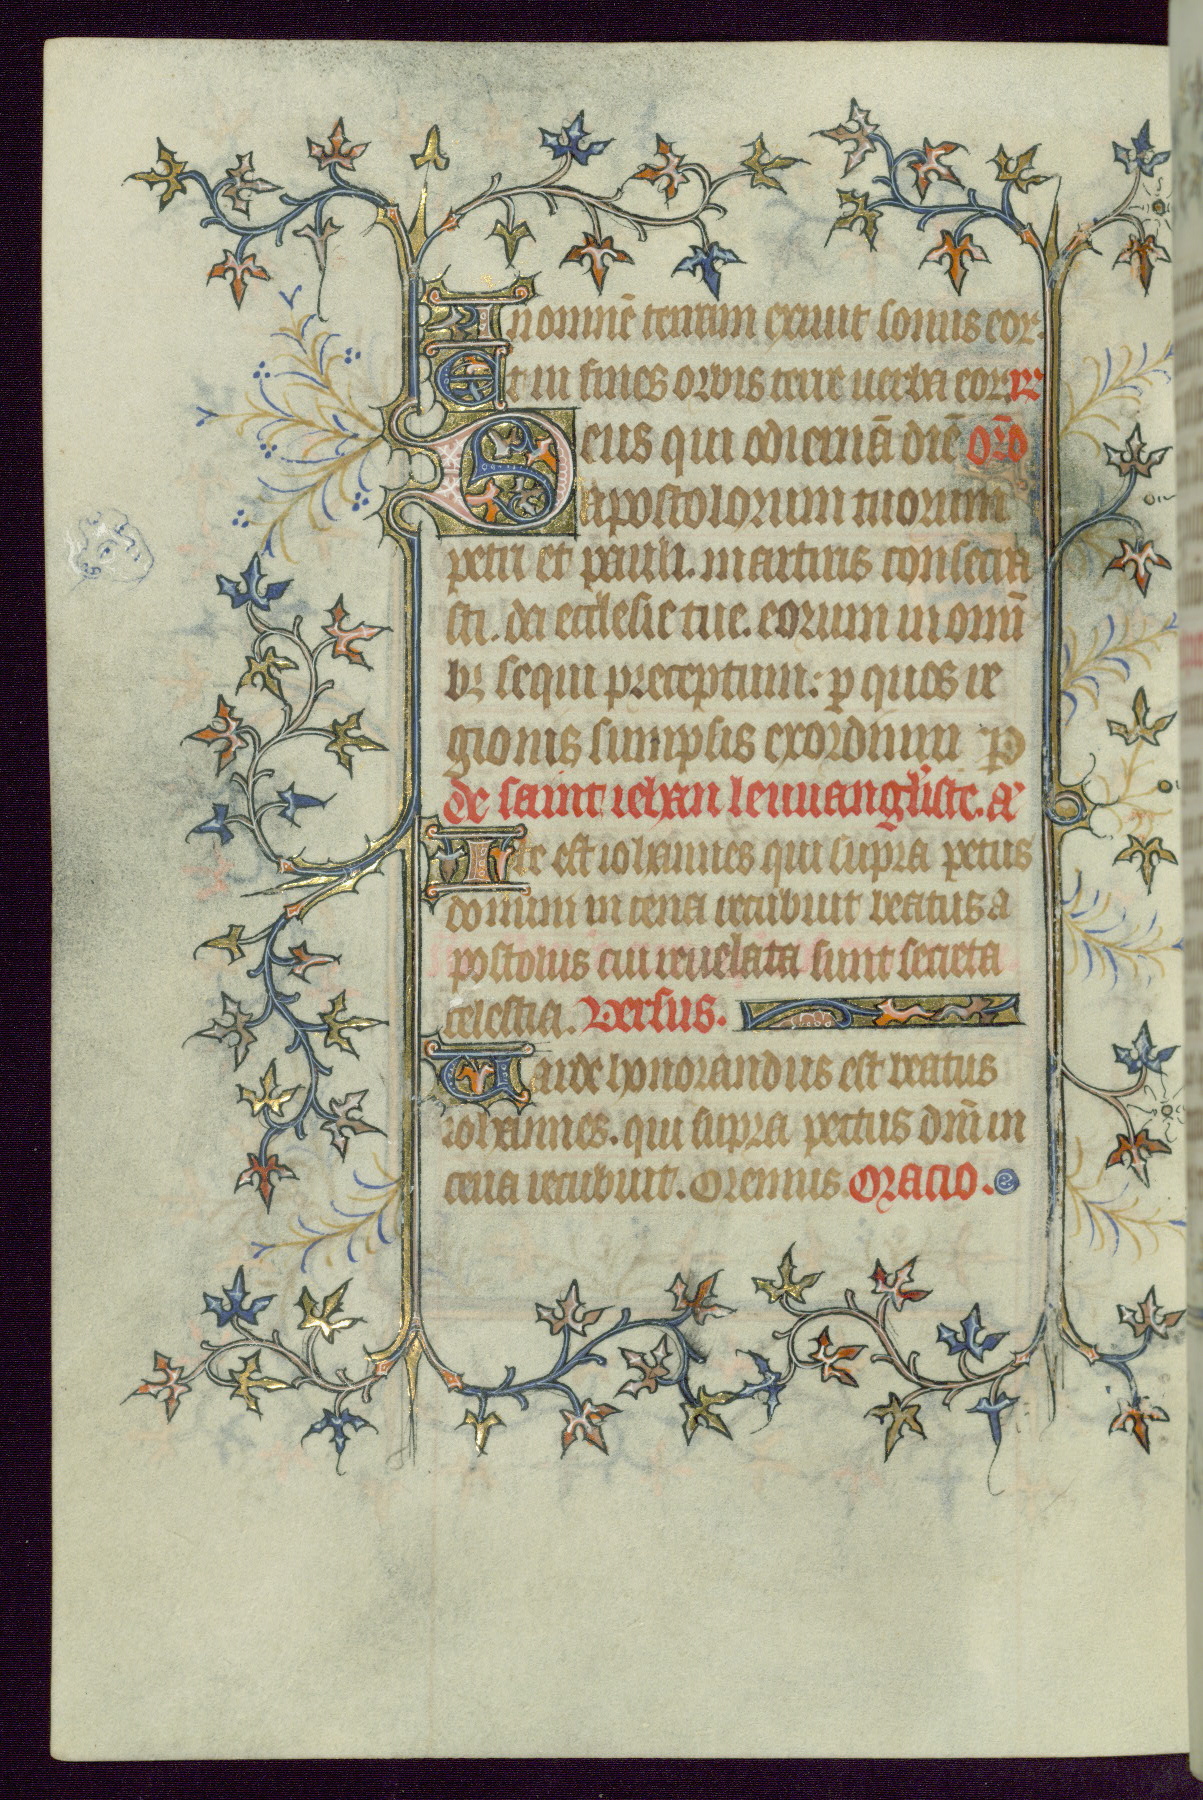 In omnē terram exiuit sonus eor.
Et in fines orbis terre uerba eor. R
Deus qui odiernā diē Orō
apostolorum tuorum
petri et pauli. martiris consecra
sti. da ecclesie tue. eorum in omni
bꝫ sequi preceptum: p quos re
gionis sumpsis exordium P
de saint iehan leuuangliste. A
Iste est iohannes qui supra pectus
domini in cena recubuit beatus a
postolus cui reuelata sunt secreta
celestia. Versus.
Ualde honorandus est beatus
iohannes. qui supra pectus dm̄ in
cena recubuit. Oremus. Oracio.